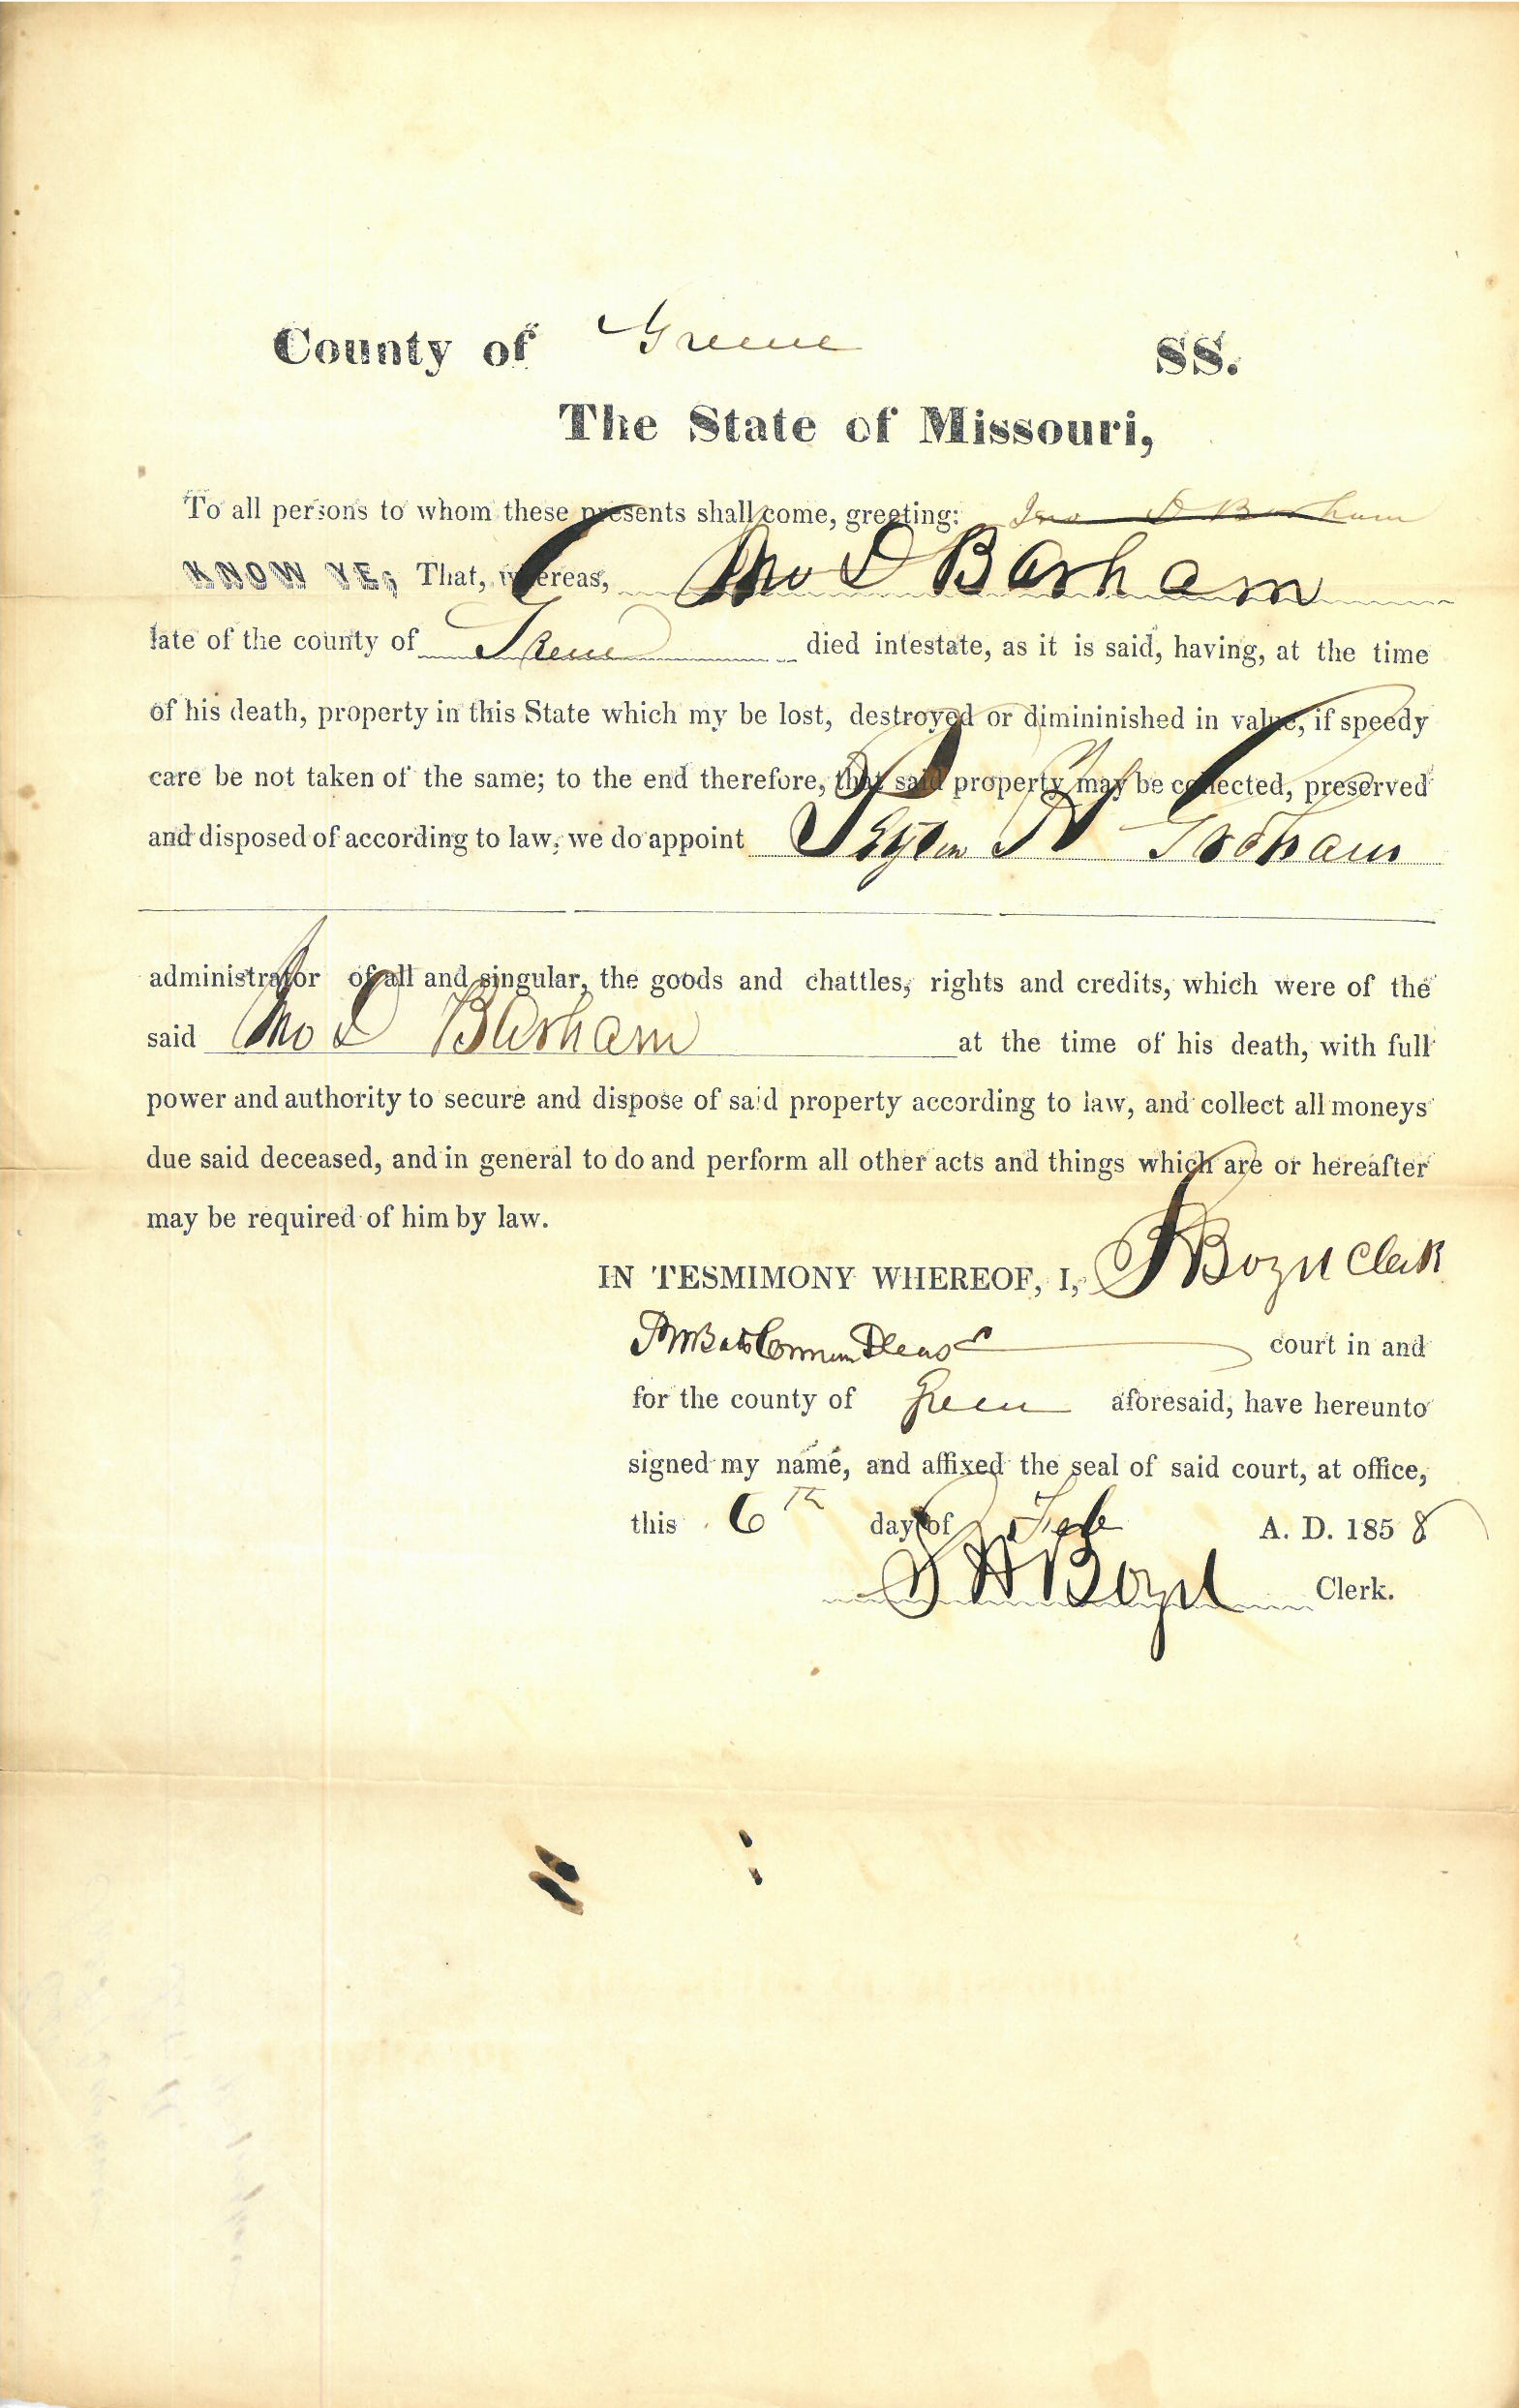 County of Greene SS.
The State of Missouri,
To all persons to whom these presents shall come, greeting: Jno D Barham
KNOW YE; That, whereas, Jno D Barham
late of the county of Greene died intestate, as it is said, having, at the time
of his death, property in this State which my be lost, destroyed or dimininished in value, if speedy
care be not taken of the same; to the end therefore, that said property may be collected, preserved
and disposed of according to law, we do appoint Peyton
administrator of all and singular, the goods and chattles, rights and credits, which were of the
said Jno D Barham at the time of his death, with full
power and authority to secure and dispose of said property according to law, and collect all moneys
due said deceased, and in general to do and perform all other acts and things which are or hereafter
may be required of him by law.
IN TESMIMONY WHEREOF, I, S H Boyd Clerk
Common Pleas court in and
for the county of Green aforesaid, have hereunto
signed my name, and affixed the seal of said court, at office,
this 6th day of Feb A. D. 1858
S H Boyd Clerk.